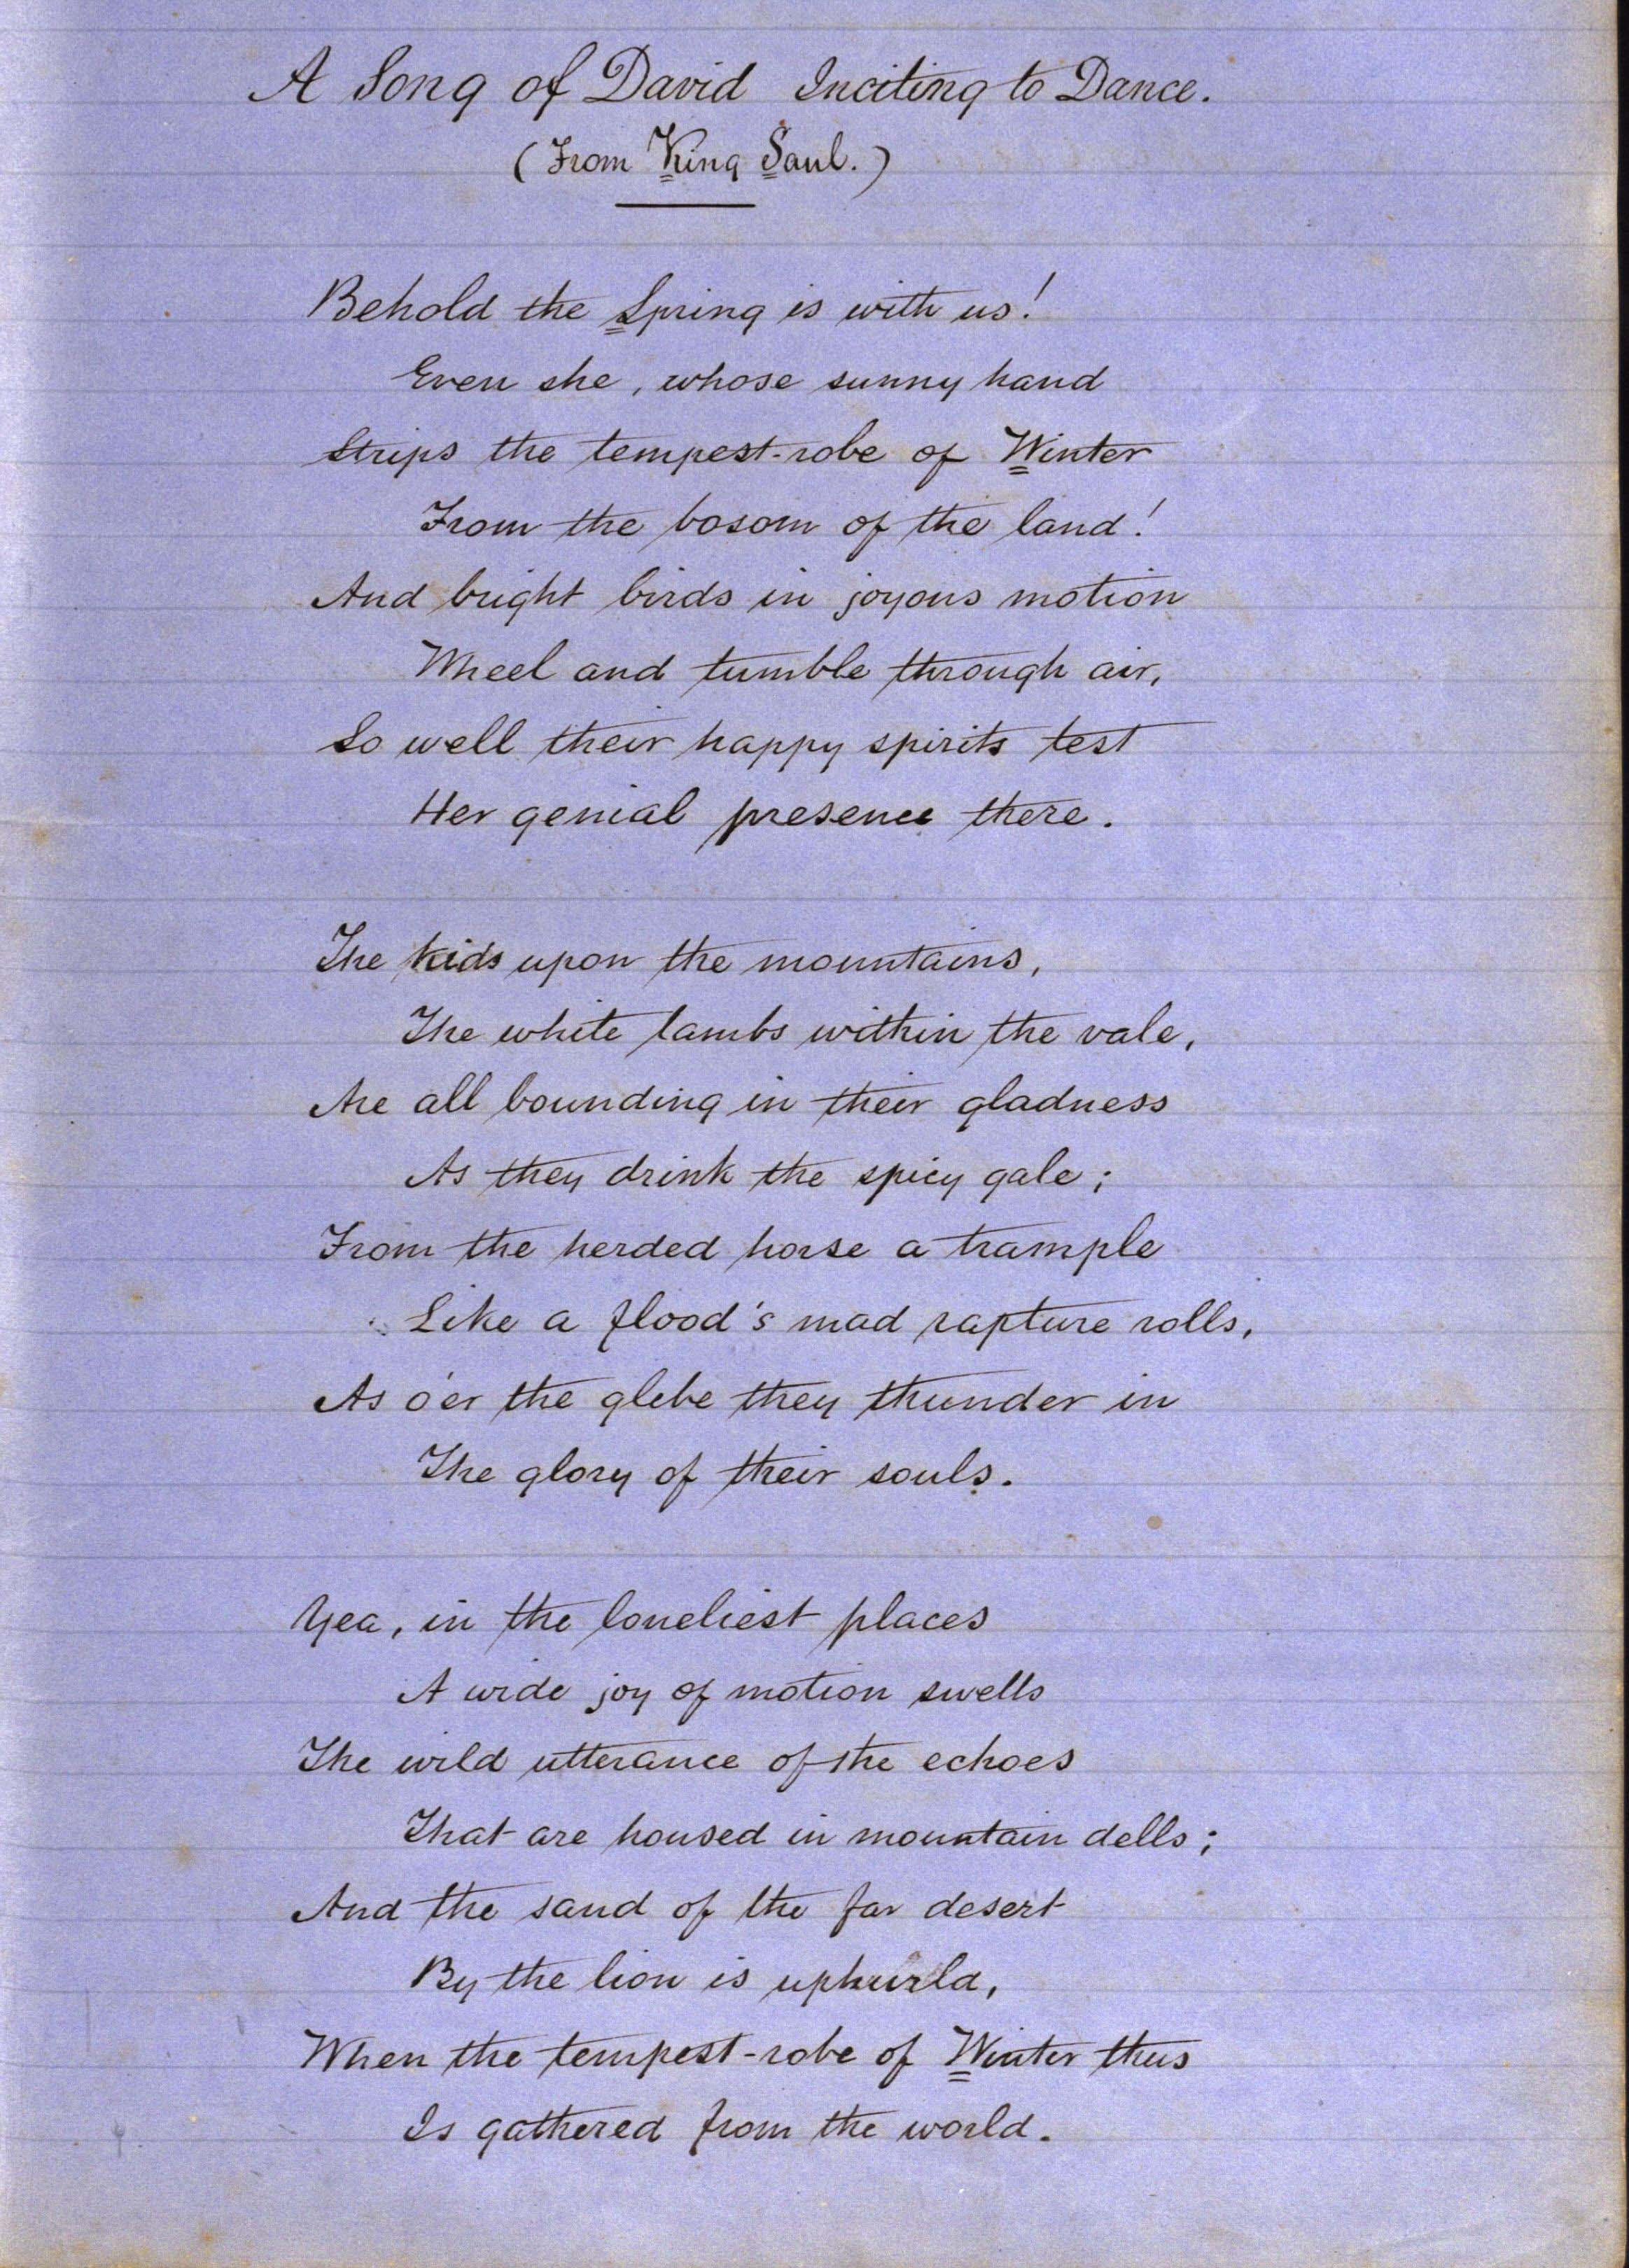 A Song of David Inciting to Dance.
(From King Saul.)
Behold the Spring is with us!
Even she, whose sunny hand
Strips the tempest-robe of Winter
From the bosom of the land!
And bright birds in joyous motion
Wheel and tumble through air,
So well their happy spirits test
Her genial presence there.
The kids upon the mountains,
The white lambs within the vale,
Are all bounding in their gladness
As they drink the spicy gale;
From the herded horse a trample
Like a flood's mad rapture rolls,
As o'er the glebe they thunder in
The glory of their souls.
Yea, in the loneliest places
A wide joy of motion swells
The wild utterance of the echoes
That are housed in mountain dells;
And the sand of the far desert
By the lion is uphurld,
When the tempest-robe of Winter thus
Is gathered from the world.